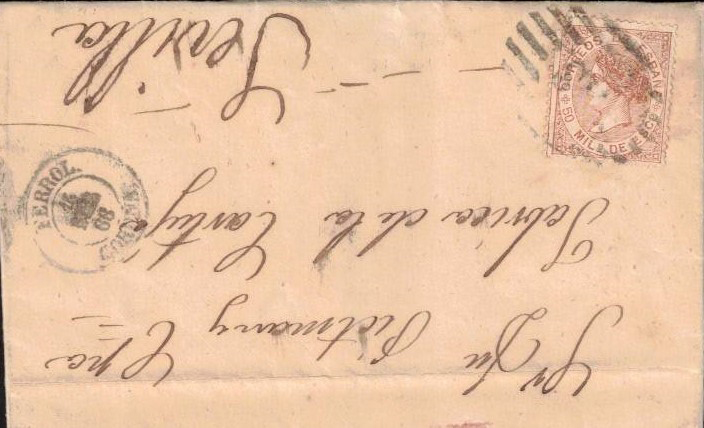 Sr Dn Pickman y Cpa
Fabrica de la Cartuja
Sevilla
CORREOS ESPAÑA
50 MILS DE ESCO
FERROL
CORUÑA
68